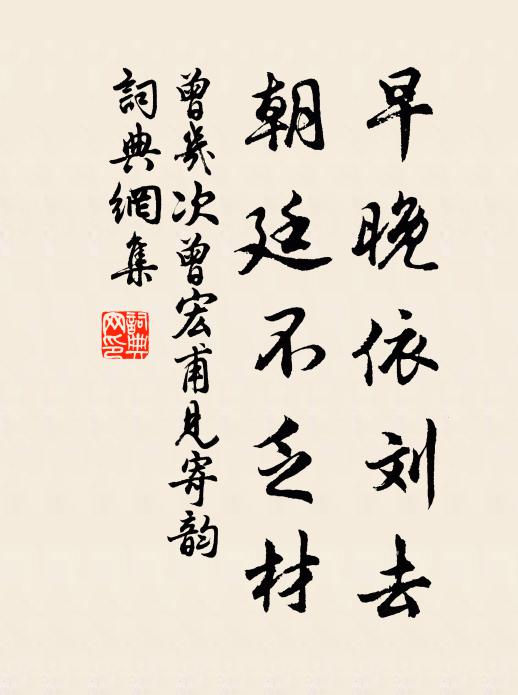 早晚依刘去
朝廷不乏材
曾幾次曾宏甫見寄韵
詞典網集
詞典網印